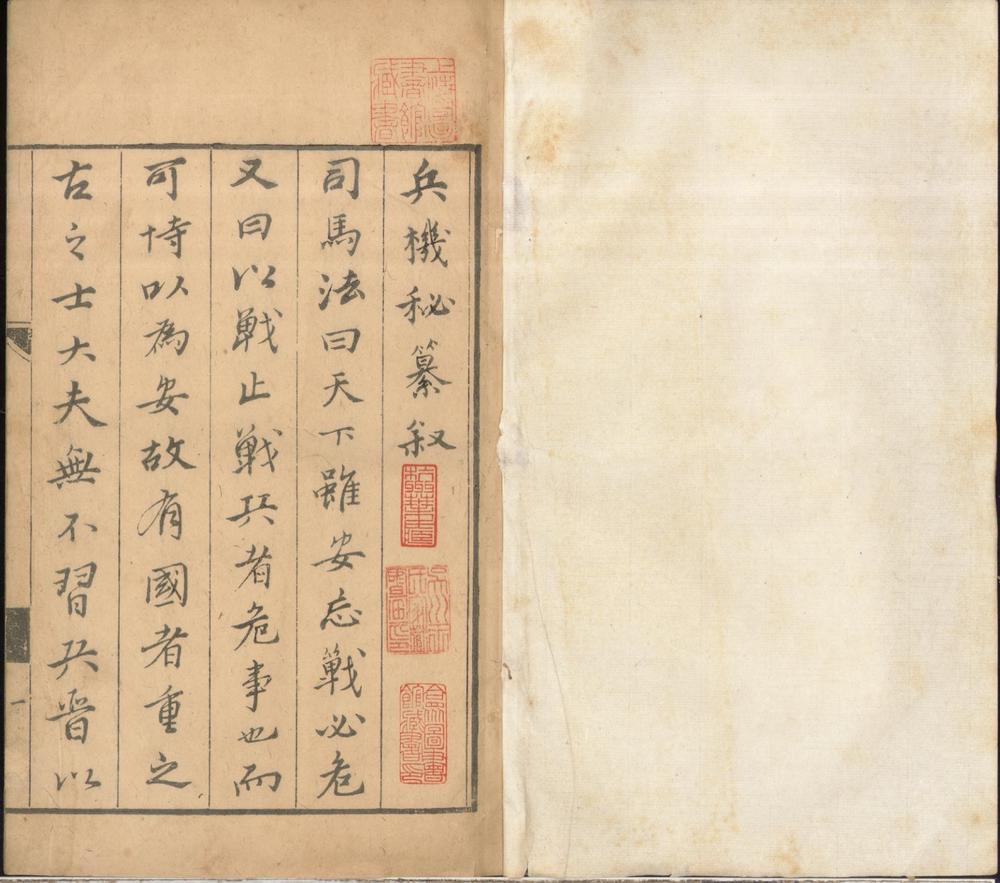 兵機秘纂叙
司馬法曰天下雖安忘戰必危
又曰以戰止戰兵者危事也而
可恃以為安故有國者重之
古之士大夫無不習兵晉以
一